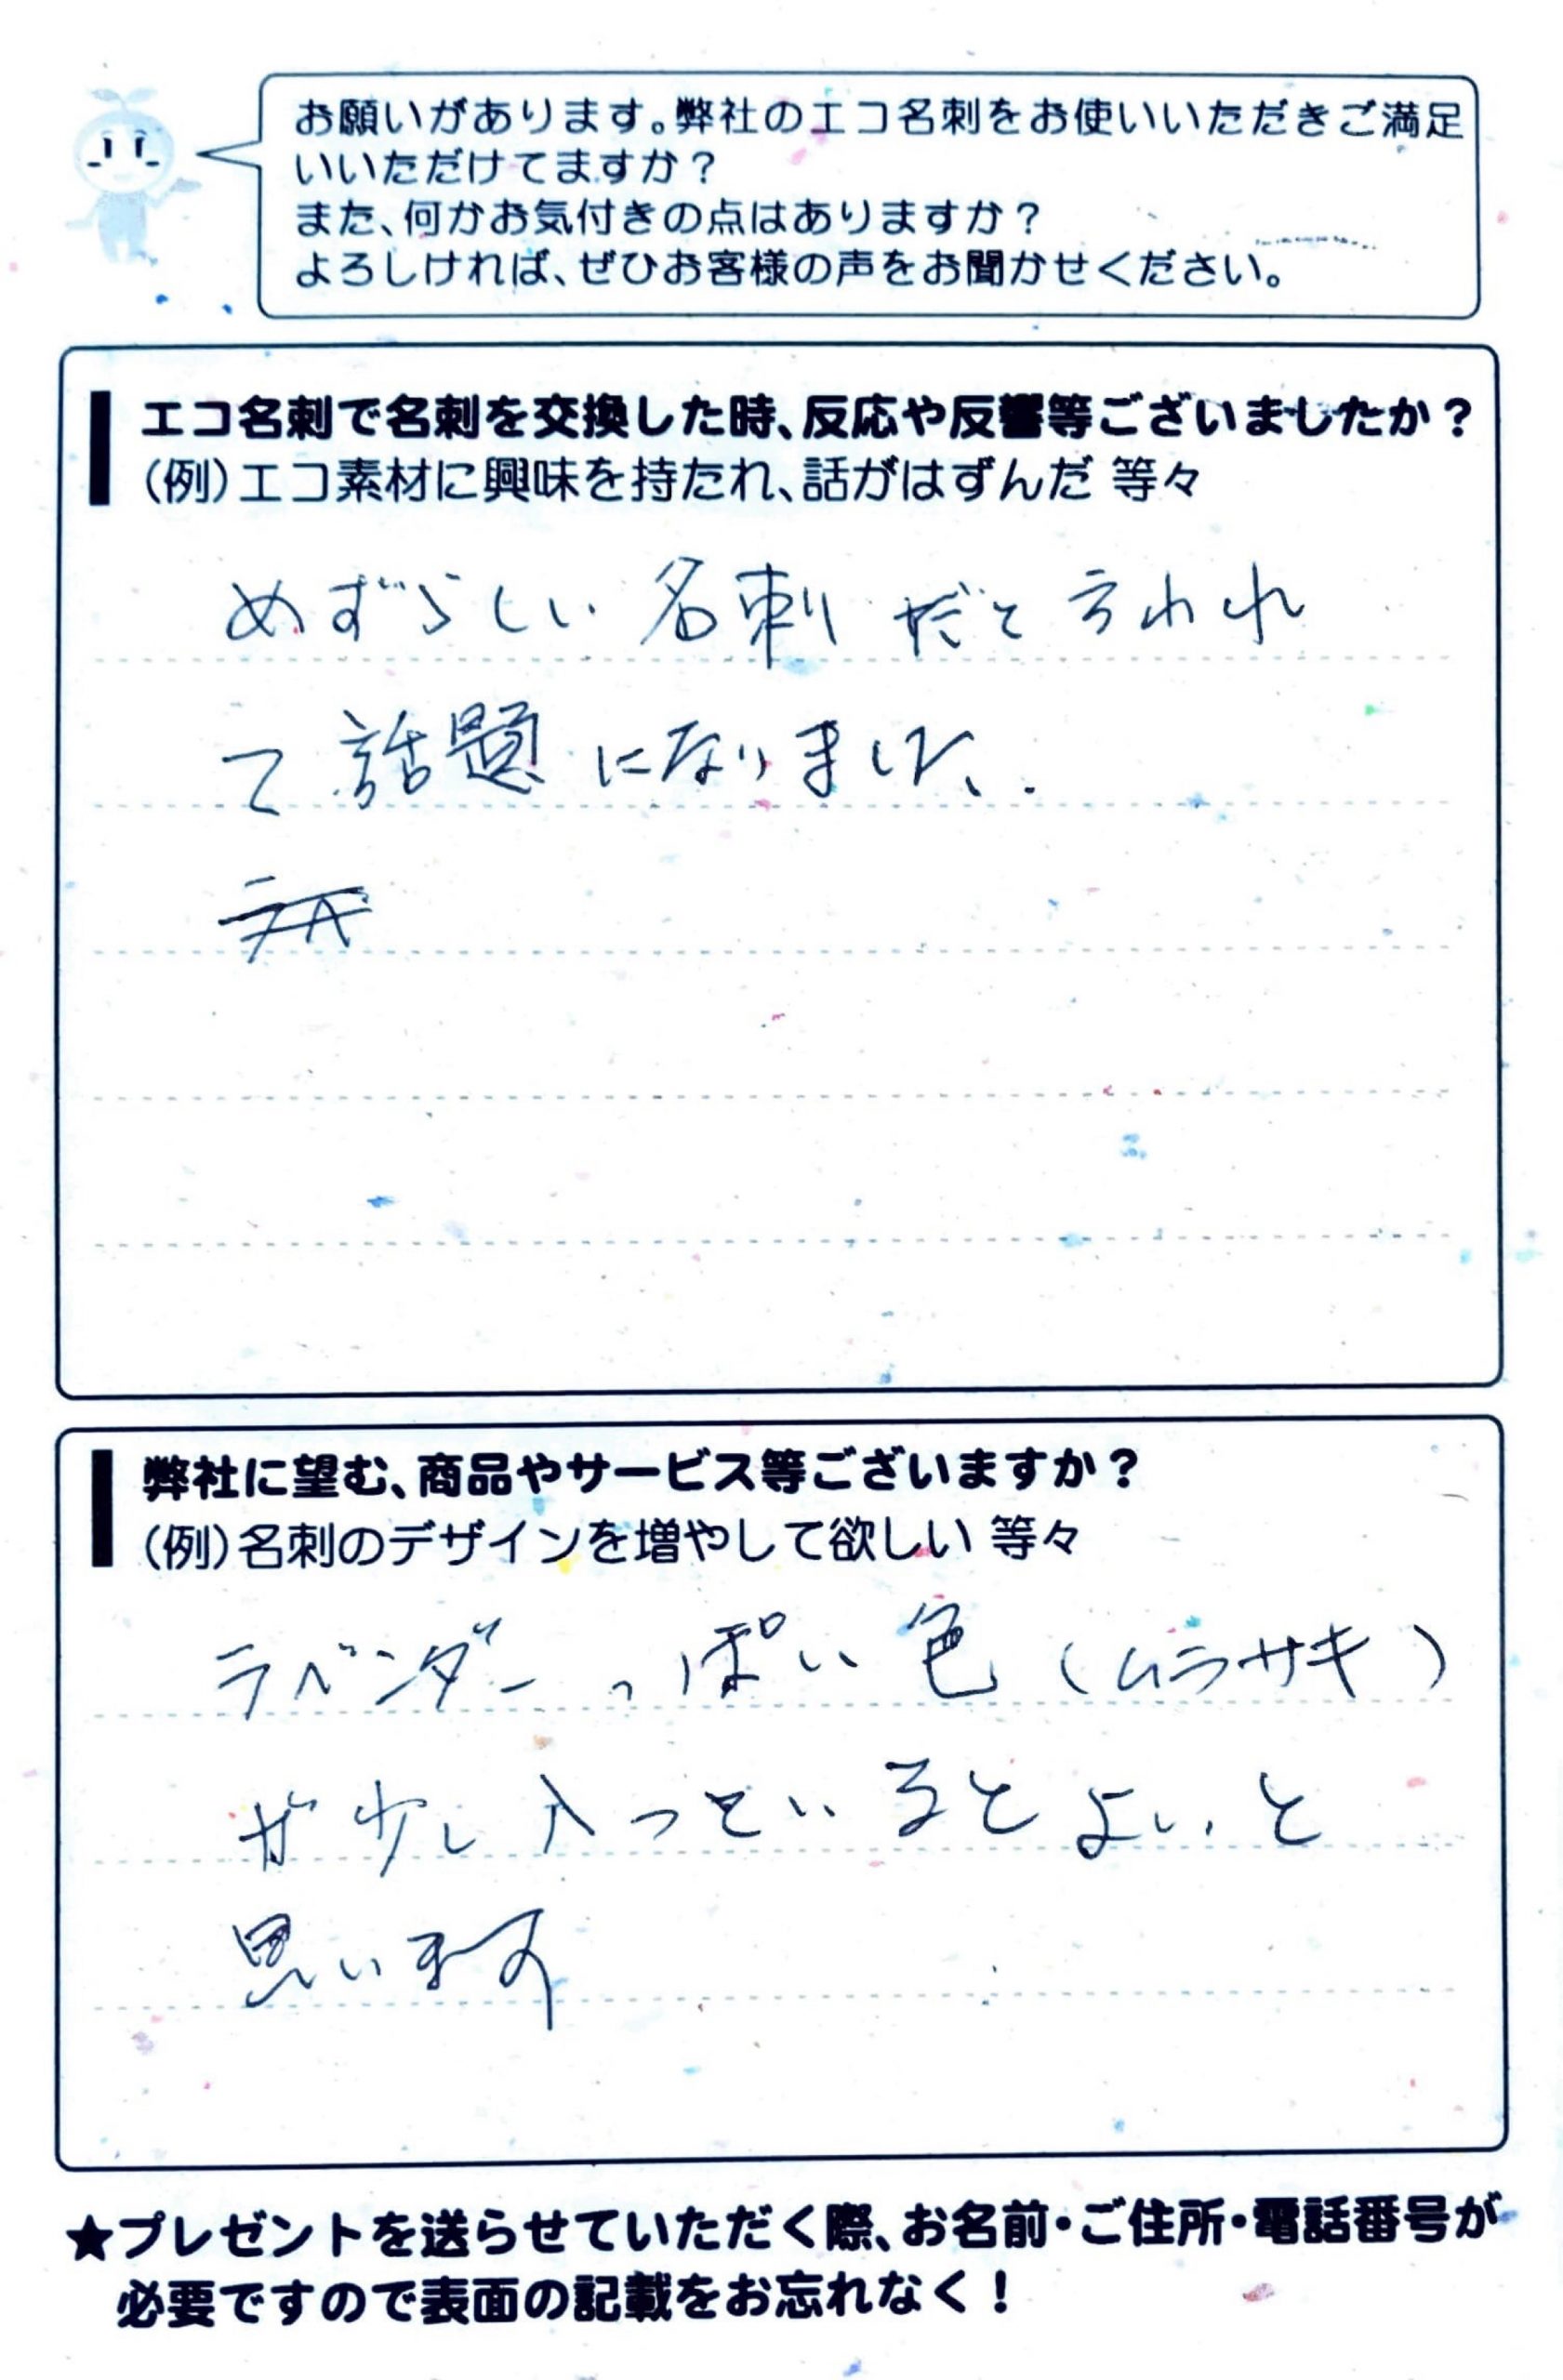 お願いがあります。弊社のエコ名刺をお使いいただきご満足
いいただけてますか？
また、何かお気付きの点はありますか？
よろしければ、ぜひお客様の声をお聞かせください。
エコ名刺で名刺を交換した時、反応や反響等ございましたか？
（例）エコ素材に興味を持たれ、話がはずんだ 等々
めずらしい名刺だと言われ
て話題になりました.
弊社に望む、商品やサービス等ございますか？
（例）名刺のデザインを増やして欲しい 等々
ラベンダーっぽい色（ムラサキ）
が少し入っているとよいと
思います
★プレゼントを送らせていただく際、お名前・ご住所・電話番号が
必要ですので表面の記載をお忘れなく！